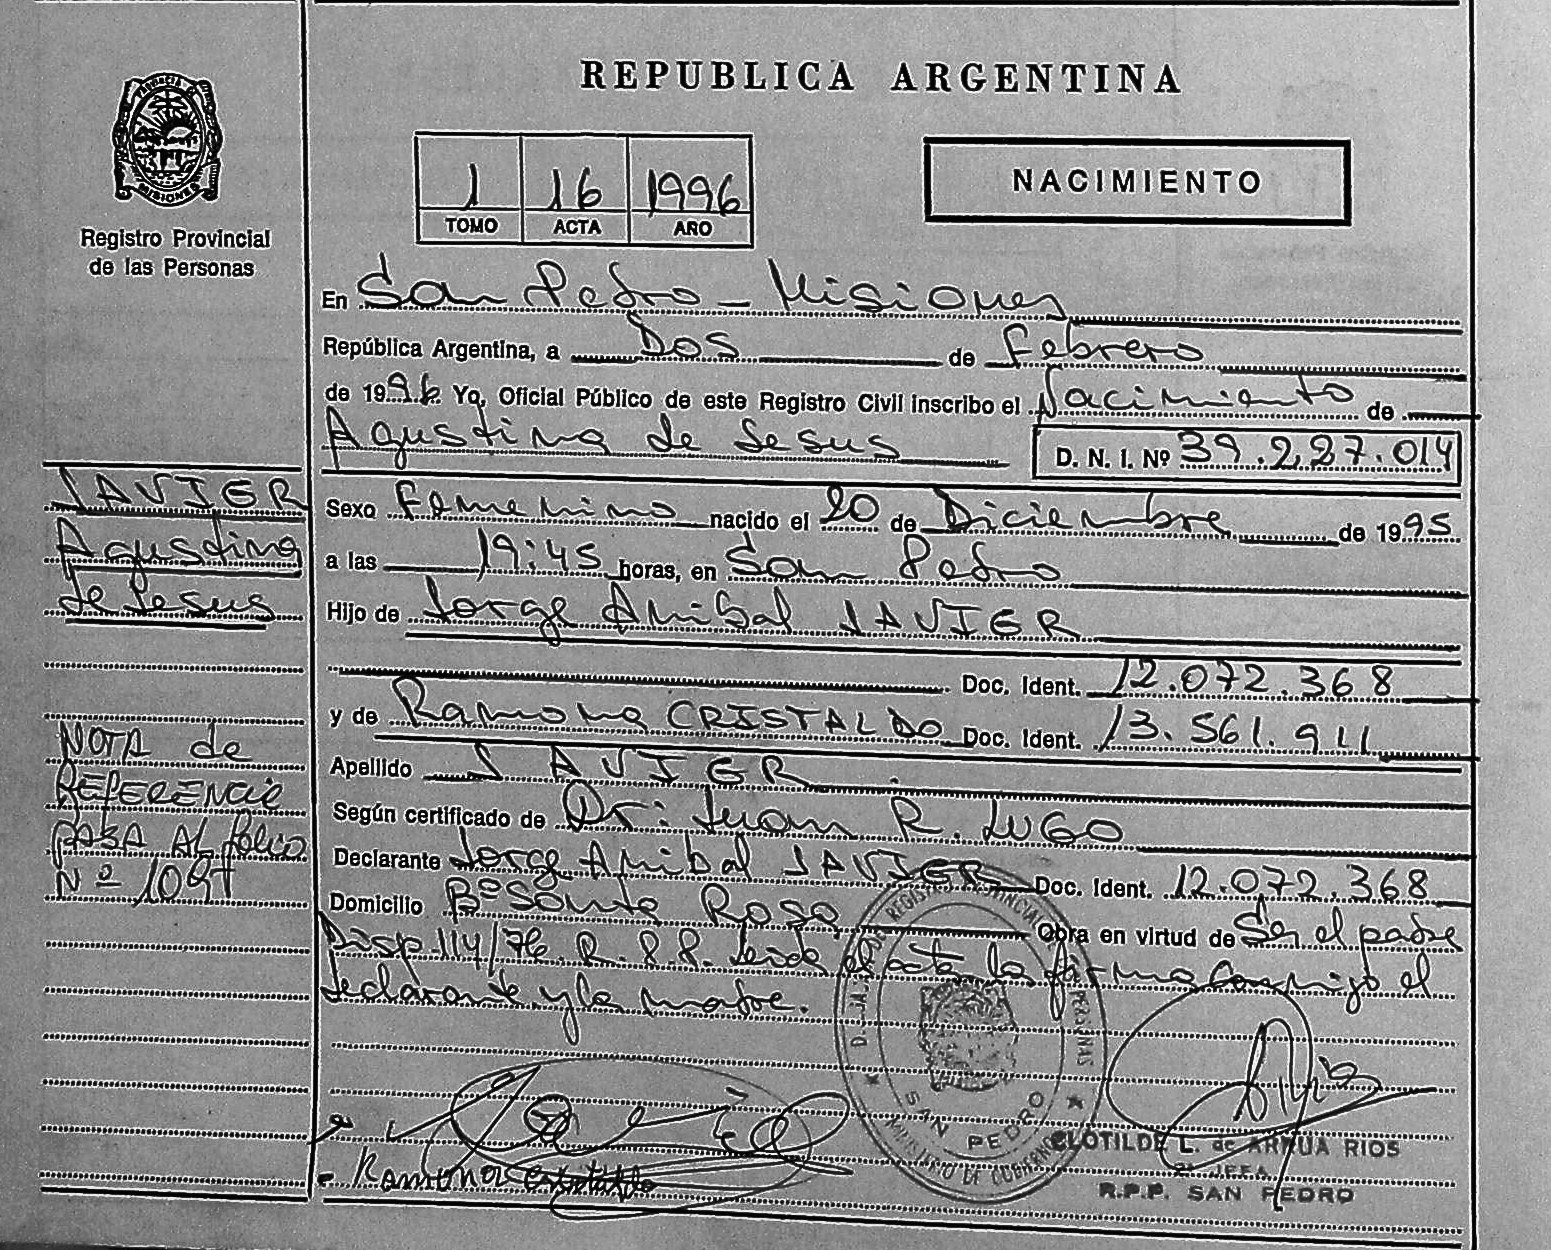 REPUBLICA ARGENTINA
MISIONES
Registro Provincial
de las Personas
1 16 1996
TOMO ACTA AÑO
NACIMIENTO
En San Pedro - Misiones
República Argentina, a Dos de Febrero
de 1996. Yo, Oficial Público de este Registro Civil inscribo el Nacimiento de
Agustina de Jesus D. N. I. Nº 39.287.014
JAVIER
Agustina
de Jesus
Sexo Femenino nacido el 20 de Diciembre de 1995
a las 19:45 horas, en San Pedro
Hijo de Jorge Anibal JAVIER
Doc. Ident. 12.072.368
y de Ramona CRISTALDO Doc. Ident. 13.561.911
Apellido JAVIER.
Según certificado de Dr: Juan R. LUGO
Declarante Jorge Anibal JAVIER Doc. Ident. 12.072.368
Domicilio Bº Santa Rosa Obra en virtud de Ser el padre
Disp. 114/76. R.P.P. Leida el acta la firma conmigo el
declarante y la madre.
NOTA de
REFERENCIA
PASA AL folio
Nº 109
REGISTRO PROVINCIAL PERSONAS
SAN PEDRO
MINISTERIO DE GOBIERNO
Ramona Cristaldo
CLOTILDE L. de ARRUA RIOS
2ª JEFA
R.P.P. SAN PEDRO